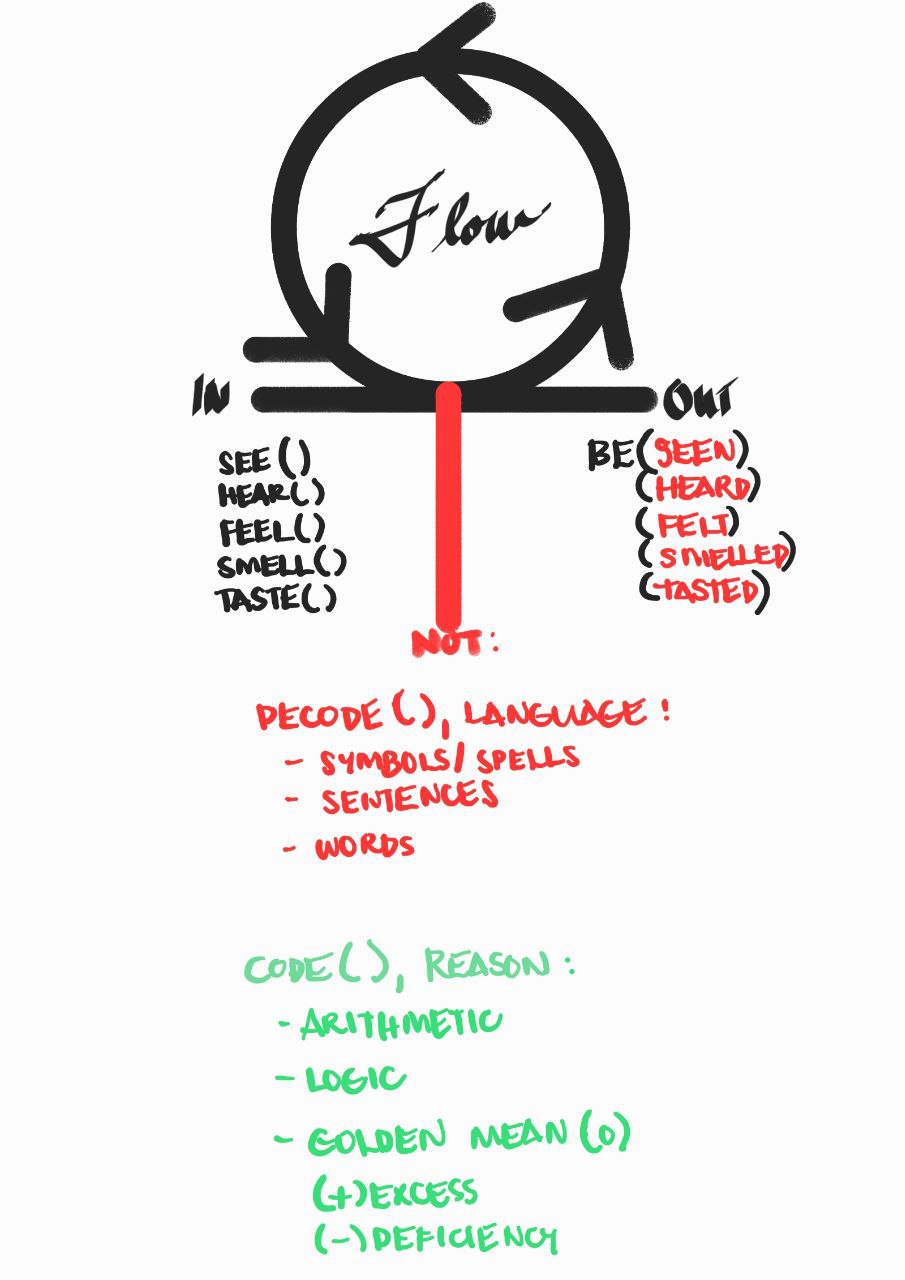 Flow
IN
OUT
SEE ()
HEAR()
FEEL()
SMELL()
TASTE()
BE(SEEN)
(HEARD)
(FELT)
(SMELLED)
(TASTED)
NOT:
DECODE(), LANGUAGE!
- SYMBOLS/SPELLS
- SENTENCES
- WORDS
CODE(), REASON:
- ARITHMETIC
- LOGIC
- GOLDEN MEAN (0)
(+)EXCESS
(-)DEFICIENCY